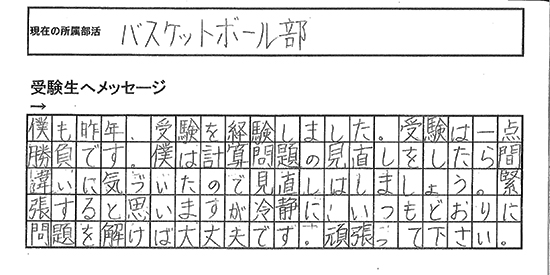 現在の所属部活 バスケットボール部
受験生へメッセージ
→
僕も昨年、受験を経験しました。受験は一点
勝負です。僕は計算問題の見直しをしたら間
違いに気づいたので見直しはしましょう。緊
張すると思いますが冷静にいつもどおりに
問題を解けば大丈夫です。頑張って下さい。